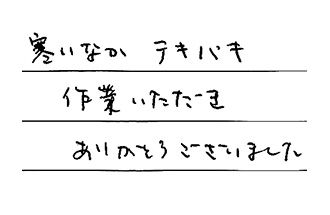 寒いなか テキパキ
作業いただき
ありがとうございました